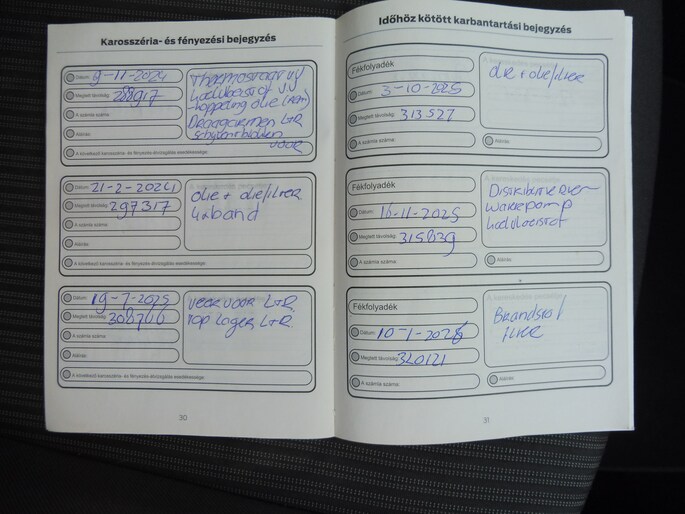 Karosszéria- és fényezési bejegyzés
Dátum: 9-11-2024
Megtett távolság: 288917
A számla száma:
Aláírás:
A következő karosszéria- és fényezés-átvizsgálás esedékessége:
Thermostaat vij
koelvloeistof vij
Koppeling olie (rem)
Draagarmen L+R
schijven+blokken
voor
Dátum: 21-2-2024
Megtett távolság: 297317
A számla száma:
Aláírás:
A következő karosszéria- és fényezés-átvizsgálás esedékessége:
olie + oliefilter
4x band
Dátum: 19-7-2025
Megtett távolság: 308700
A számla száma:
Aláírás:
A következő karosszéria- és fényezés-átvizsgálás esedékessége:
veer voor L+R
top lager L+R
30
Időhöz kötött karbantartási bejegyzés
Fékfolyadék
Dátum: 3-10-2025
Megtett távolság: 313527
A számla száma:
olie + oliefilter
Aláírás:
Fékfolyadék
Dátum: 16-11-2025
Megtett távolság: 315839
A számla száma:
Distributie Riem
waterpomp
koelvloeistof
Aláírás:
Fékfolyadék
Dátum: 10-1-2026
Megtett távolság: 320121
A számla száma:
Brandstof
filter
Aláírás:
31